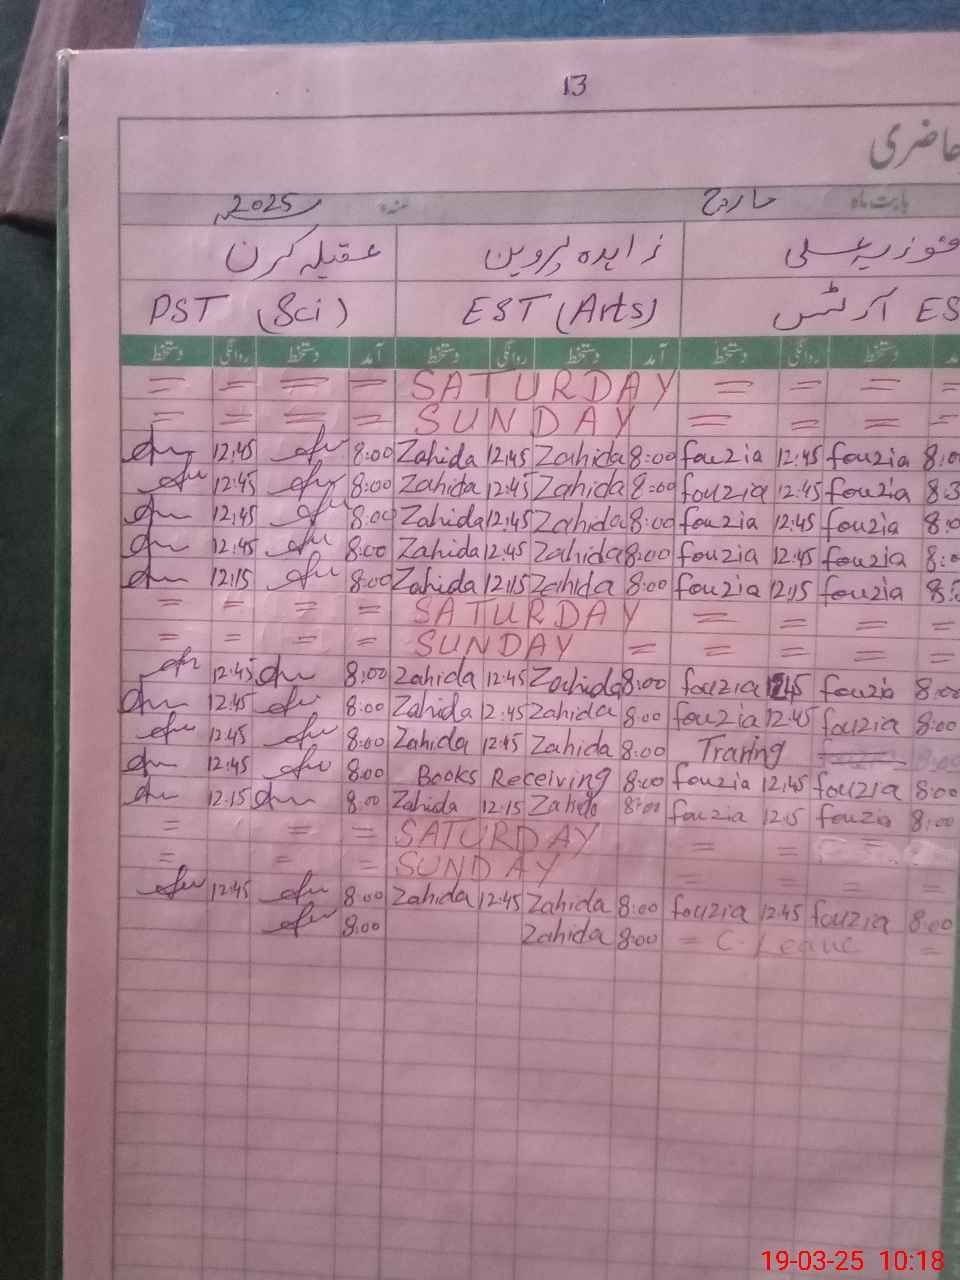 13
حاضری
بابت ماہ مارچ سنہ 2025
فوزیہ علی زاہدہ پروین عقیلہ کرن
PST (Sci) EST (Arts) ES آرٹس
دستخط روانگی دستخط آمد دستخط روانگی دستخط آمد دستخط روانگی دستخط
= = = = SATURDAY = = = =
= = = = SUNDAY = = = =
12:45 8:00 Zahida 12:45 Zahida 8:00 fouzia 12:45 fouzia 8:0
12:45 8:00 Zahida 12:45 Zahida 8:00 fouzia 12:45 fouzia 8:3
12:45 8:00 Zahida 12:45 Zahida 8:00 fouzia 12:45 fouzia 8:0
12:45 8:00 Zahida 12:45 Zahida 8:00 fouzia 12:45 fouzia 8:0
12:15 8:00 Zahida 12:15 Zahida 8:00 fouzia 12:15 fouzia 8:
= = = = SATURDAY = = = =
= = = = SUNDAY = = = = =
12:45 8:00 Zahida 12:45 Zahida 8:00 fouzia 12:45 fouzia 8:00
12:45 8:00 Zahida 12:45 Zahida 8:00 fouzia 12:45 fouzia 8:00
12:45 8:00 Zahida 12:45 Zahida 8:00 Traning
12:45 8:00 Books Receiving 8:00 fouzia 12:45 fouzia 8:00
12:15 8:00 Zahida 12:15 Zahida 8:00 fouzia 12:15 fouzia 8:00
= = = SATURDAY = =
= = = SUNDAY = = = =
12:45 8:00 Zahida 12:45 Zahida 8:00 fouzia 12:45 fouzia 8:00
8:00 Zahida 8:00 = C-Leave =
19-03-25 10:18